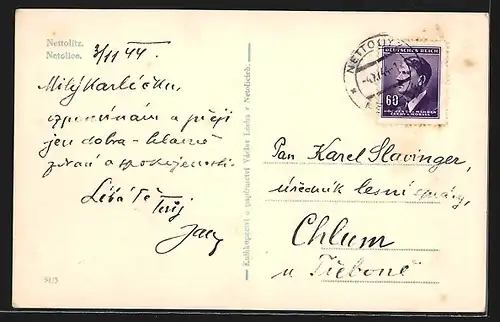 Nettolitz.
Netolice.
3/11 44.
Milý Karlíčku,
vzpomínám a přeji
jen dobra - hlavně
zdraví a spokojenosti.
Líbá Tě
Tvůj
Knihkupectví a papírnictví Václav Londa v Netolicích.
NETTOLITZ
DEUTSCHES REICH
60
BÖHMEN UND MÄHREN
ČECHY A MORAVA
Pan Karel Slavinger,
úředník lesní správy,
Chlum
u Třeboně